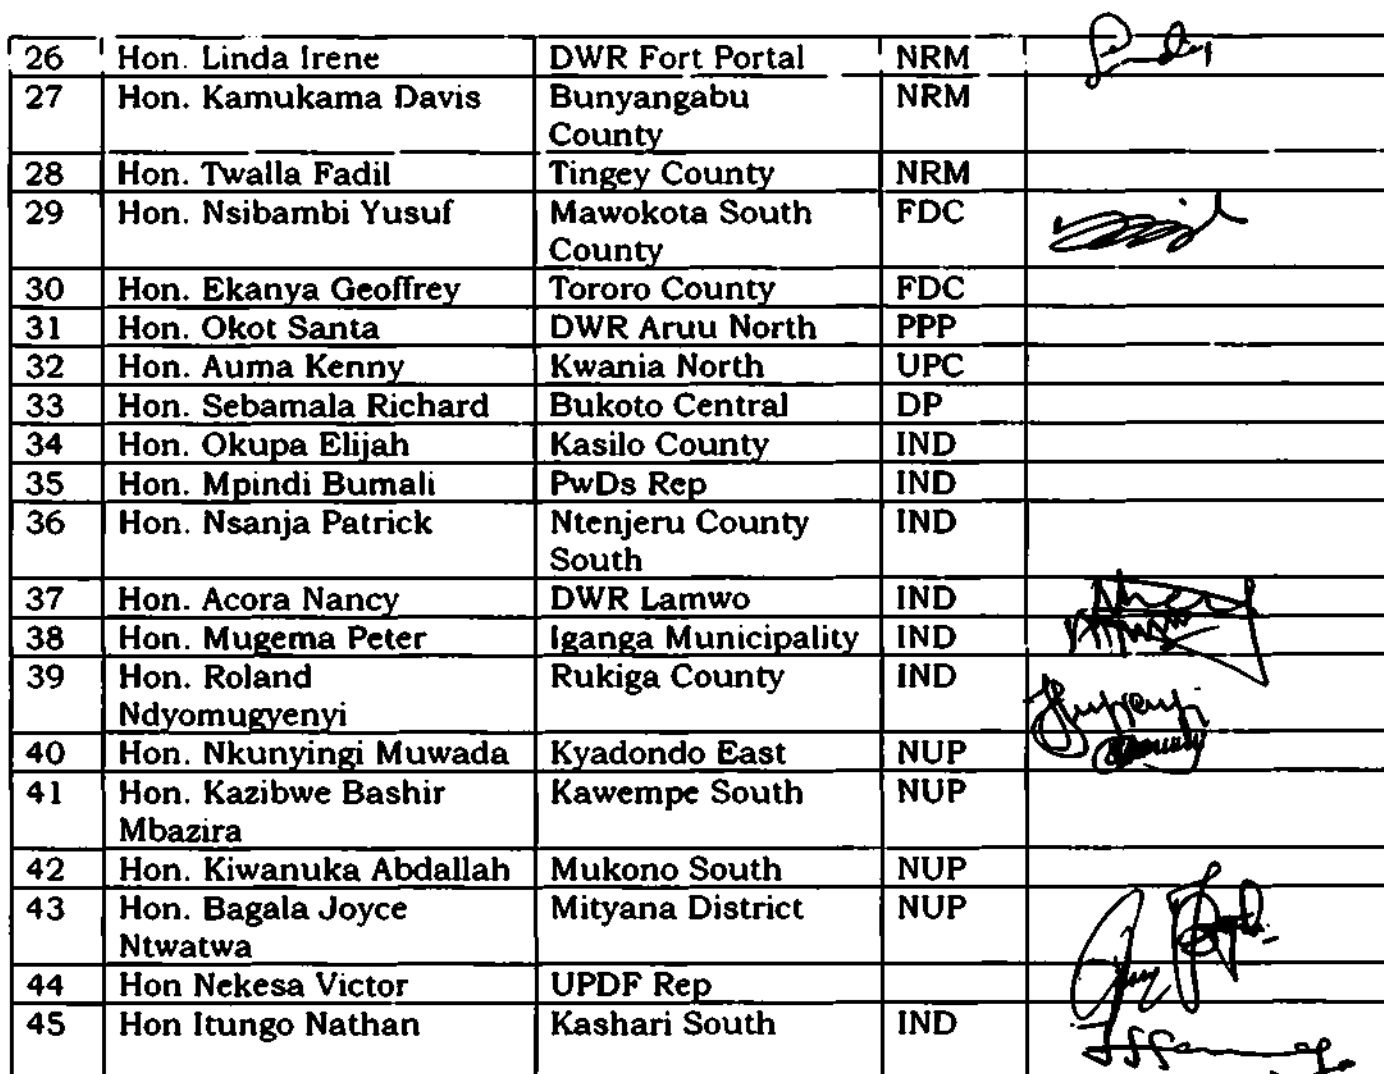 26 Hon. Linda Irene DWR Fort Portal NRM
27 Hon. Kamukama Davis Bunyangabu NRM
County
28 Hon. Twalla Fadil Tingey County NRM
29 Hon. Nsibambi Yusuf Mawokota South FDC
County
30 Hon. Ekanya Geoffrey Tororo County FDC
31 Hon. Okot Santa DWR Aruu North PPP
32 Hon. Auma Kenny Kwania North UPC
33 Hon. Sebamala Richard Bukoto Central DP
34 Hon. Okupa Elijah Kasilo County IND
35 Hon. Mpindi Bumali PwDs Rep IND
36 Hon. Nsanja Patrick Ntenjeru County IND
South
37 Hon. Acora Nancy DWR Lamwo IND
38 Hon. Mugema Peter Iganga Municipality IND
39 Hon. Roland Rukiga County IND
Ndyomugyenyi
40 Hon. Nkunyingi Muwada Kyadondo East NUP
41 Hon. Kazibwe Bashir Kawempe South NUP
Mbazira
42 Hon. Kiwanuka Abdallah Mukono South NUP
43 Hon. Bagala Joyce Mityana District NUP
Ntwatwa
44 Hon Nekesa Victor UPDF Rep
45 Hon Itungo Nathan Kashari South IND